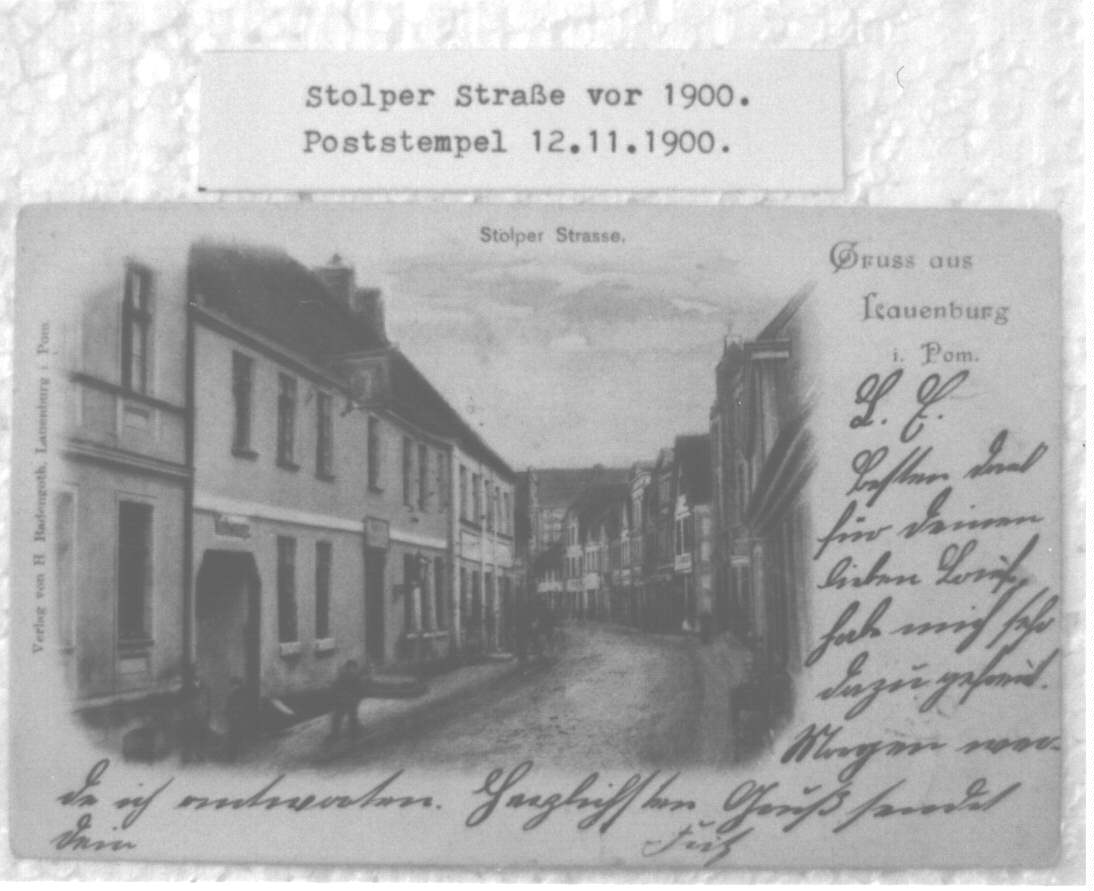 Stolper Straße vor 1900.
Poststempel 12.11.1900.
Stolper Strasse.
Gruss aus
Lauenburg
i. Pom.
Verlag von H. Badengoth, Lauenburg i. Pom.
L. E.
Besten Dank
für Deinen
lieben Brief,
hab mich sehr
dazu gefreut.
Morgen wer-
de ich antworten. Herzlichsten Gruß sendet
Dein Fritz